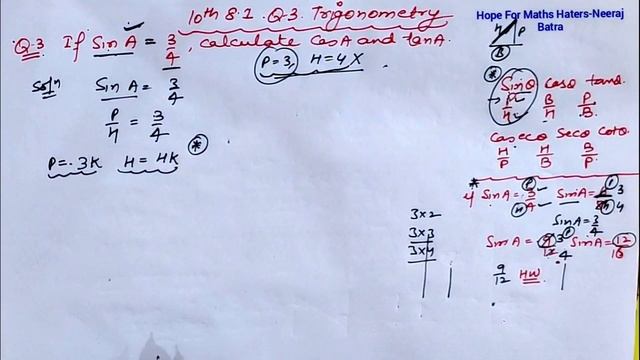 10th 8.1. Q.3. Trigonometry
Hope For Maths Haters-Neeraj Batra
Q.3 If Sin A = 3/4, calculate CosA and tanA.
P=3, H=4 X
H P
B
Soln Sin A = 3/4
P/H = 3/4
P = 3K H = 4K *
* Sinθ Cosθ tanθ
P/H B/H P/B
Cosecθ Secθ Cotθ
H/P H/B B/P
SinA = 3/4
3×2
3×3
3×4
SinA = 12/16
9/12 HW